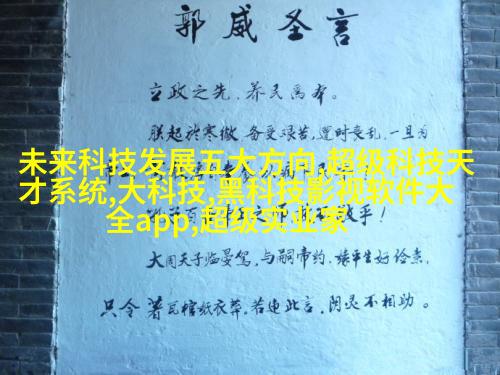 郭威圣言
立政之先.养民爲本。
朕起於寒微 备受艰苦,遭时丧乱,一旦为
未来科技发展五大方向,超级科技天
才系统,大科技,黑科技影视软件大
全app,超级实业家
大周天子临晏驾,与嗣帝约,缘平生好俭素,
只令著瓦棺纸衣葬,若违此言,阴灵不相助。